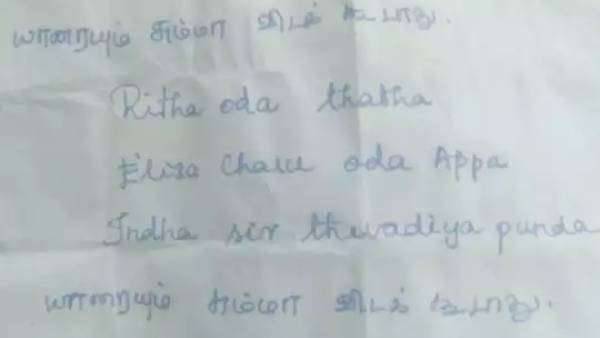 யாரையும் சும்மா விடக் கூடாது.
Ritha oda thatha
Eliza Chali oda Appa
Indha sir thevadiya punda
யாரையும் சும்மா விடக் கூடாது.